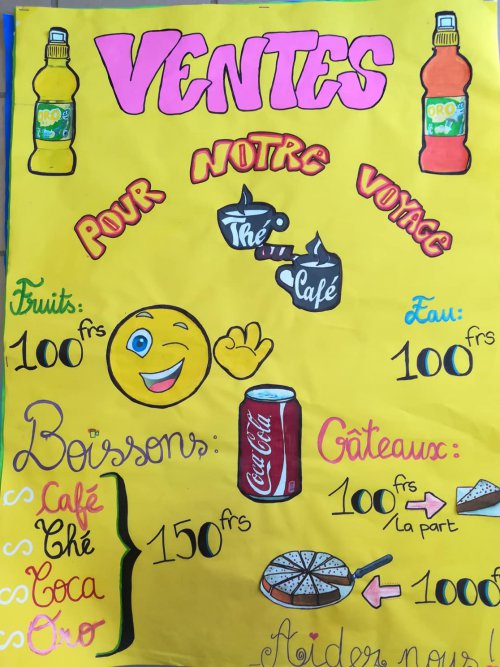 VENTES
POUR NOTRE VOYAGE
ORO
ORO
Thé
Café
Fruits:
100 frs
Eau:
100 frs
Coca-Cola
Boissons:
Café
Thé
Coca
Oro
150 frs
Gâteaux:
100 frs
/La part
1000 f
Aider nous!